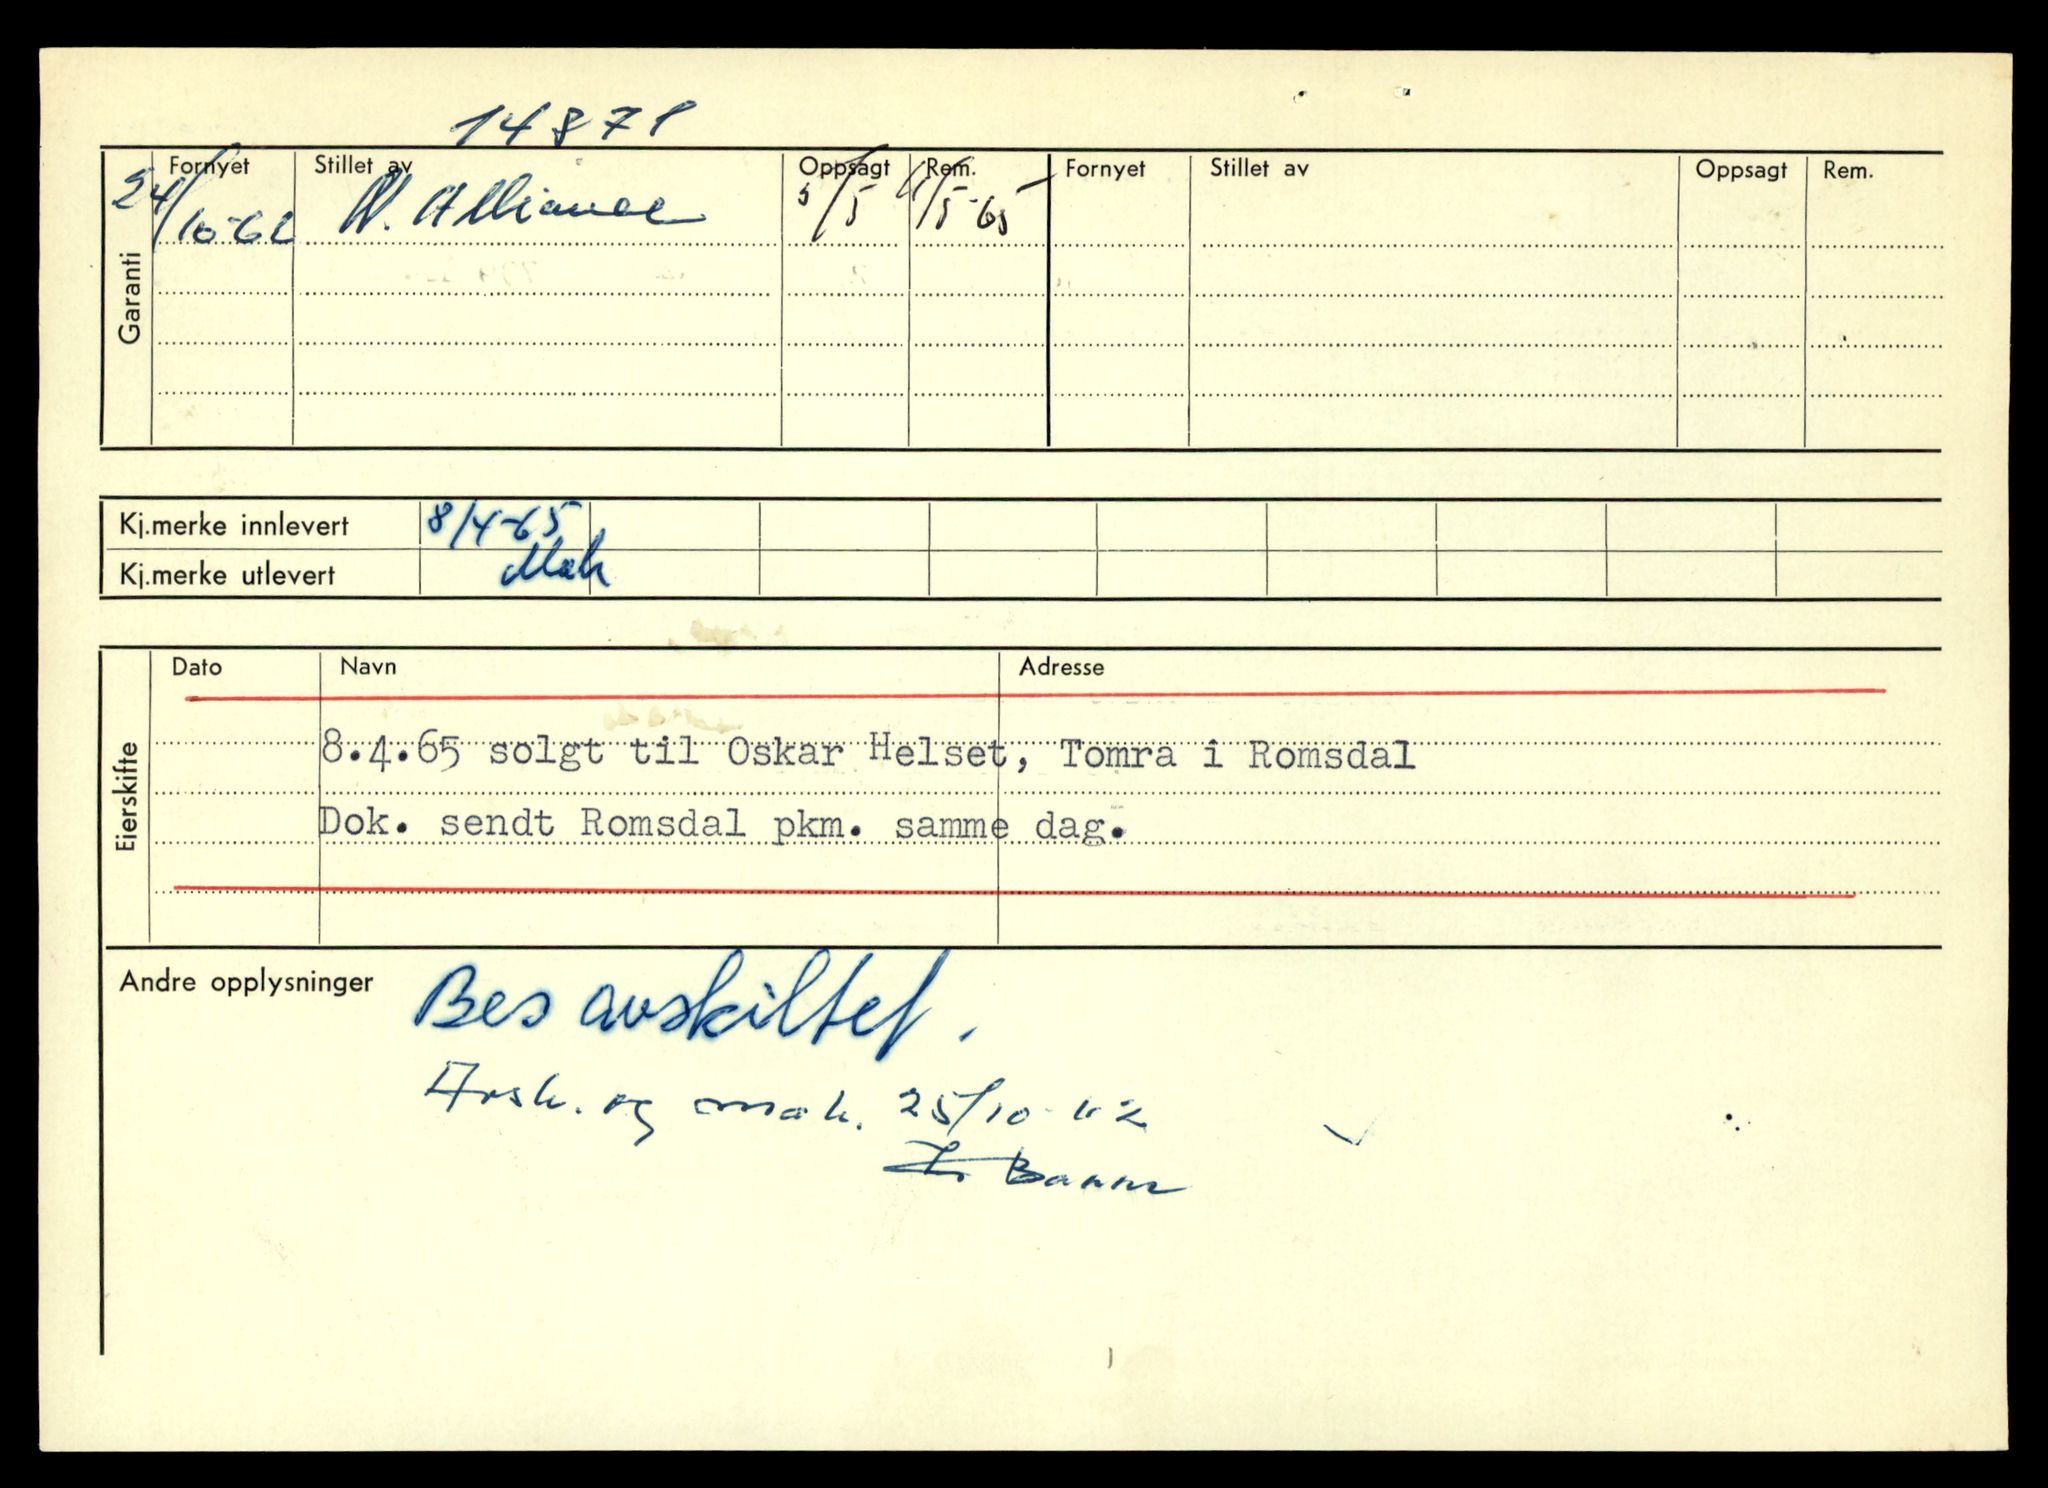 14871
Fornyet Stillet av Oppsagt Rem. Fornyet Stillet av Oppsagt Rem.
24/10-62 N. Alliance 5/5 11/5-65
Garanti
Kj.merke innlevert 8/4-65
Kj.merke utlevert Mak
Dato Navn Adresse
Eierskifte
8.4.65 solgt til Oskar Helset, Tomra i Romsdal
Dok. sendt Romsdal pkm. samme dag.
Andre opplysninger Bes avskiltet.
og mak. 25/10-62